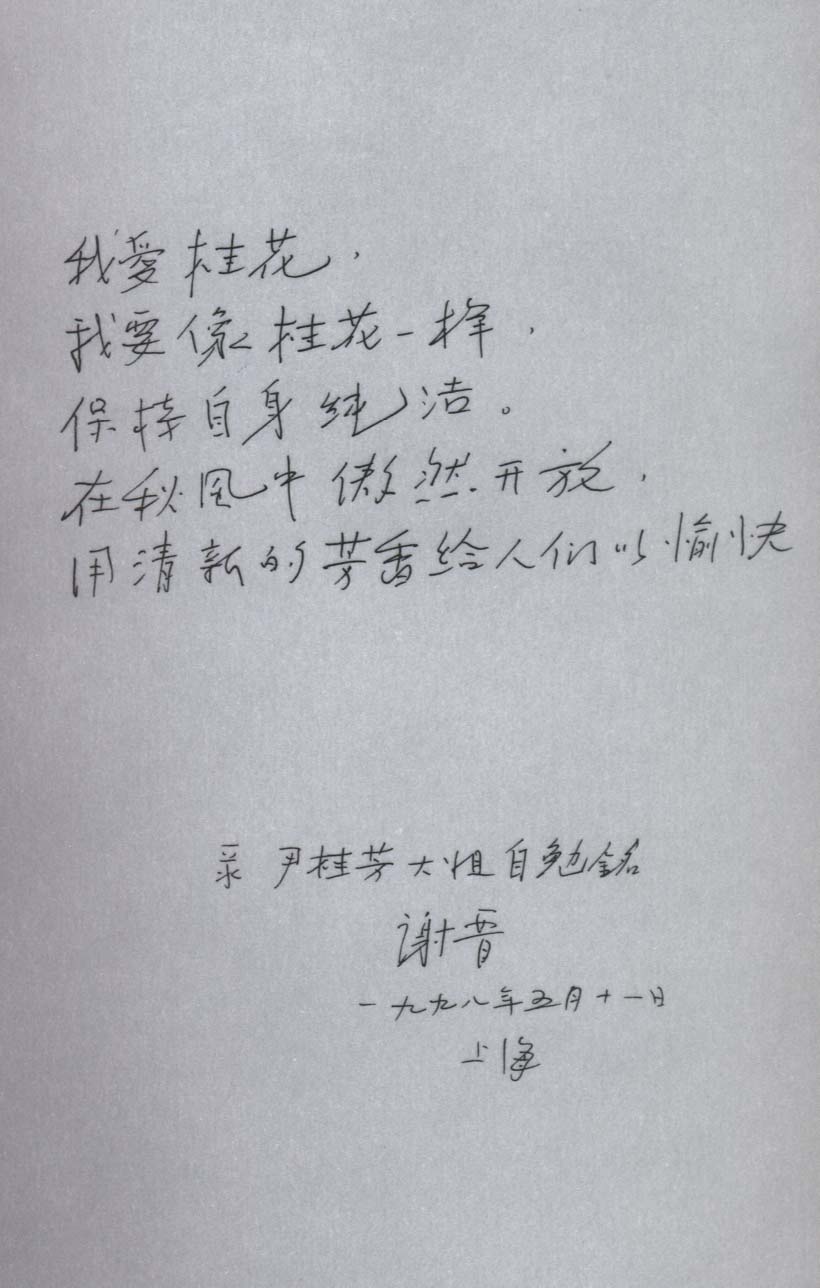 我愛桂花，
我要像桂花一样，
保持自身纯洁。
在秋风中傲然开放，
用清新的芳香给人们以愉快
录 尹桂芳大姐自勉銘
谢晋
一九九八年五月十一日
上海